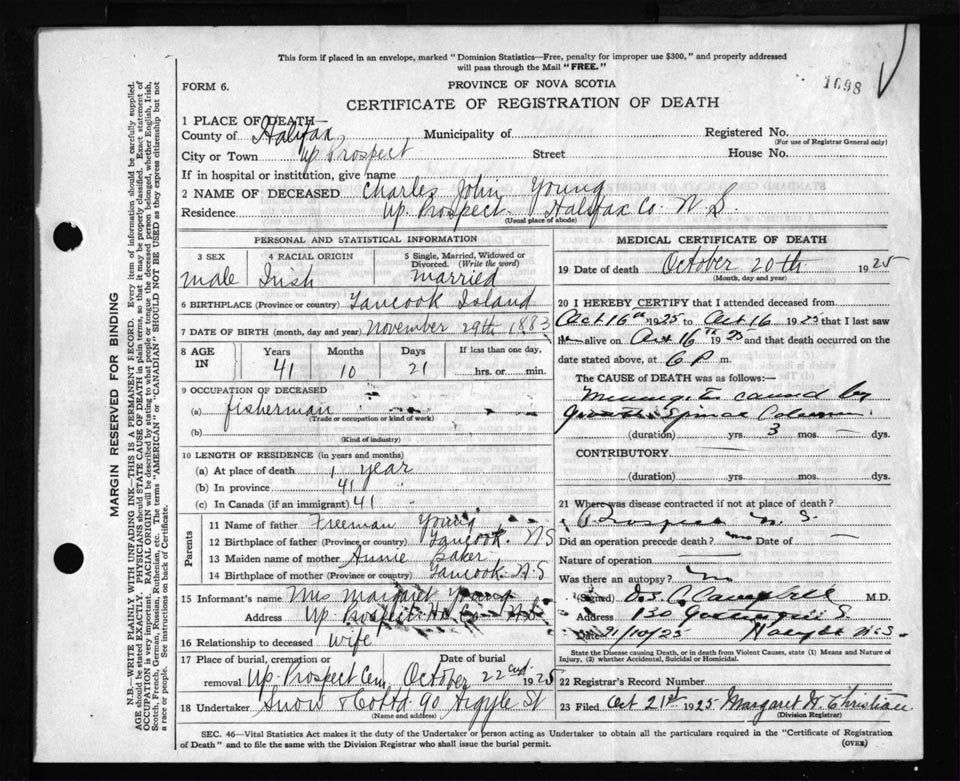 This form if placed in an envelope, marked "Dominion Statistics—Free, penalty for improper use $300," and properly addressed
will pass through the Mail "FREE."
1698
FORM 6.
PROVINCE OF NOVA SCOTIA
CERTIFICATE OF REGISTRATION OF DEATH
1 PLACE OF DEATH—
County of Halifax Municipality of Registered No.
(For use of Registrar General only)
City or Town Up Prospect Street House No.
If in hospital or institution, give name
2 NAME OF DECEASED Charles John Young
Residence Up. Prospect Halifax Co. N S.
(Usual place of abode)
PERSONAL AND STATISTICAL INFORMATION
3 SEX male
4 RACIAL ORIGIN Irish
5 Single, Married, Widowed or Divorced. (Write the word) married
6 BIRTHPLACE (Province or country) Tancook Island
7 DATE OF BIRTH (month, day and year) November 29th 1883
8 AGE IN Years 41 Months 10 Days 21 If less than one day, hrs. or min.
9 OCCUPATION OF DECEASED
(a) fisherman
(Trade or occupation or kind of work)
(b)
(Kind of industry)
10 LENGTH OF RESIDENCE (in years and months)
(a) At place of death 1 year
(b) In province 41 "
(c) In Canada (if an immigrant) 41 "
Parents
11 Name of father Freeman Young
12 Birthplace of father (Province or country) Tancook. N S
13 Maiden name of mother Annie Baker
14 Birthplace of mother (Province or country) Tancook N.S
15 Informant's name Mrs Margaret Young
Address Up. Prospect Hx Co N.S.
16 Relationship to deceased wife
17 Place of burial, cremation or removal Up. Prospect Cem Date of burial October 22nd 1925
18 Undertaker Snow & Co Ltd 90 Argyle St
(Name and address)
MEDICAL CERTIFICATE OF DEATH
19 Date of death October 20th 1925
(Month, day and year)
20 I HEREBY CERTIFY that I attended deceased from
Oct 16th 1925 to Oct 16 1925 that I last saw
h alive on Oct 16th 1925 and that death occurred on the
date stated above, at 6 P m.
The CAUSE OF DEATH was as follows:—
Meningitis caused by
growth Spinal Column
(duration) yrs. 3 mos. — dys.
CONTRIBUTORY
(duration) yrs. mos. dys.
21 Where was disease contracted if not at place of death?
Prospect N. S.
Did an operation precede death? no Date of —
Nature of operation
Was there an autopsy? No
(Signed) Campbell M.D.
Address 130
Date 21/10/25 Halifax N.S.
State the Disease causing Death, or in death from Violent Causes, state (1) Means and Nature of
Injury, (2) whether Accidental, Suicidal or Homicidal.
22 Registrar's Record Number
23 Filed Oct 21st 1925 Margaret H. Christian
(Division Registrar)
SEC. 46—Vital Statistics Act makes it the duty of the Undertaker or person acting as Undertaker to obtain all the particulars required in the "Certificate of Registration
of Death" and to file the same with the Division Registrar who shall issue the burial permit.
(OVER)
MARGIN RESERVED FOR BINDING
N.B.—WRITE PLAINLY WITH UNFADING INK—THIS IS A PERMANENT RECORD. Every item of information should be carefully supplied.
AGE should be stated EXACTLY. PHYSICIANS should STATE CAUSE OF DEATH in plain terms, so that it may be properly classified. Exact statement of
OCCUPATION is very important. RACIAL ORIGIN will be described by stating to what people or tongue the deceased person belonged, whether English, Irish,
Scotch, French, German, Russian, Ruthenian, etc. The terms "AMERICAN" or "CANADIAN" SHOULD NOT BE USED as they express citizenship but not
a race or people. See instructions on back of Certificate.